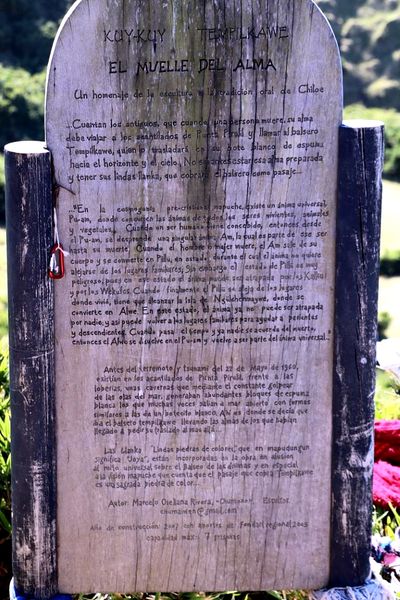 KUY-KUY TEMPILKAWE
EL MUELLE DEL ALMA
Un homenaje de la escultura a la tradición oral de Chiloe
...Cuentan los antiguos, que cuando una persona muere, su alma
debe viajar a los acantilados de Punta Pirulil y llamar al balsero
Tempilkawe, quien lo trasladará en su bote blanco de espuma
hacia el horizonte y el cielo. No es antes estar esa alma preparada
y tener sus lindas llanka, que cobrará el balsero como pasaje...
..."En la cosmogonía precristiana mapuche, existe un ánima universal
Pu-am, donde convergen las ánimas de todos los seres vivientes, animales
y vegetales. Cuando un ser humano viene concebido, entonces desde
el Pu-am, se desprende una singular ánima, Am, la cual es parte de ese ser
hasta su muerte. Cuando el hombre o mujer muere, el Am sale de su
cuerpo y se convierte en Pillü, en estado durante el cual el ánima no quiere
alejarse de los lugares familiares; sin embargo el estado de Pillü es muy
peligroso, pues en ese estado el ánima puede ser atrapada por los Kalku
y por los Wekufe. Cuando finalmente el Pillü se aleja de los lugares
donde vivió, tiene que alcanzar la Isla de Ngülchenmaywe, donde se
convierte en Alwe. En este estado, el ánima ya no puede ser atrapada
por nadie, y así puede volver a los lugares familiares para ayudar a parientes
y descendientes. Cuando pasa el tiempo y ya nadie se acuerda del muerto,
entonces el Alwe se disuelve en el Pu-am y vuelve a ser parte del ánima universal...
Antes del terremoto y tsunami del 22 de mayo de 1960,
existían en los acantilados de Punta Pirulil, frente a las
loberías, unas cavernas que mediante el constante golpear
de las olas del mar, generaban abundantes bloques de espuma
blanca los que muchas veces salían a mar abierto con formas
similares a las de un botecito blanco. Ahí es donde se decía que
iba el balsero tempilkawe llevando las almas de los que habían
llegado a pedir su traslado al más allá...
Las llanka "Lindas piedras de colores", que en mapudungun
significa "Joya", están incorporadas en la obra en alusión
al mito universal sobre el balseo de las ánimas y en especial
a la visión mapuche que cuenta que el pasaje que cobra Tempilkawe
es una sagrada piedra de color...
Autor: Marcelo Orellana Rivera, -Chumono-, Escultor
@gmail.com
Año de construcción: 2007 con aportes de Fondart regional 2005
capacidad max: 7 personas